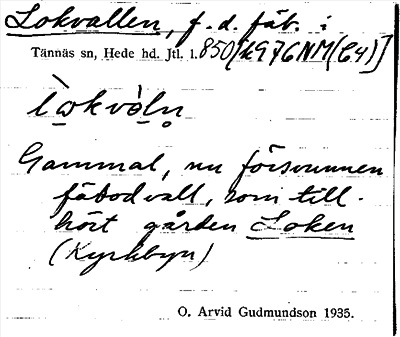 Lokvallen, f. d. fäb. i
Tännäs sn, Hede hd. Jtl. l. 850 [k976NM(C4)]
Gammal, nu försvunnen
fäbodvall, som till-
hört gården Loken
(Kyrkbyn)
O. Arvid Gudmundson 1935.